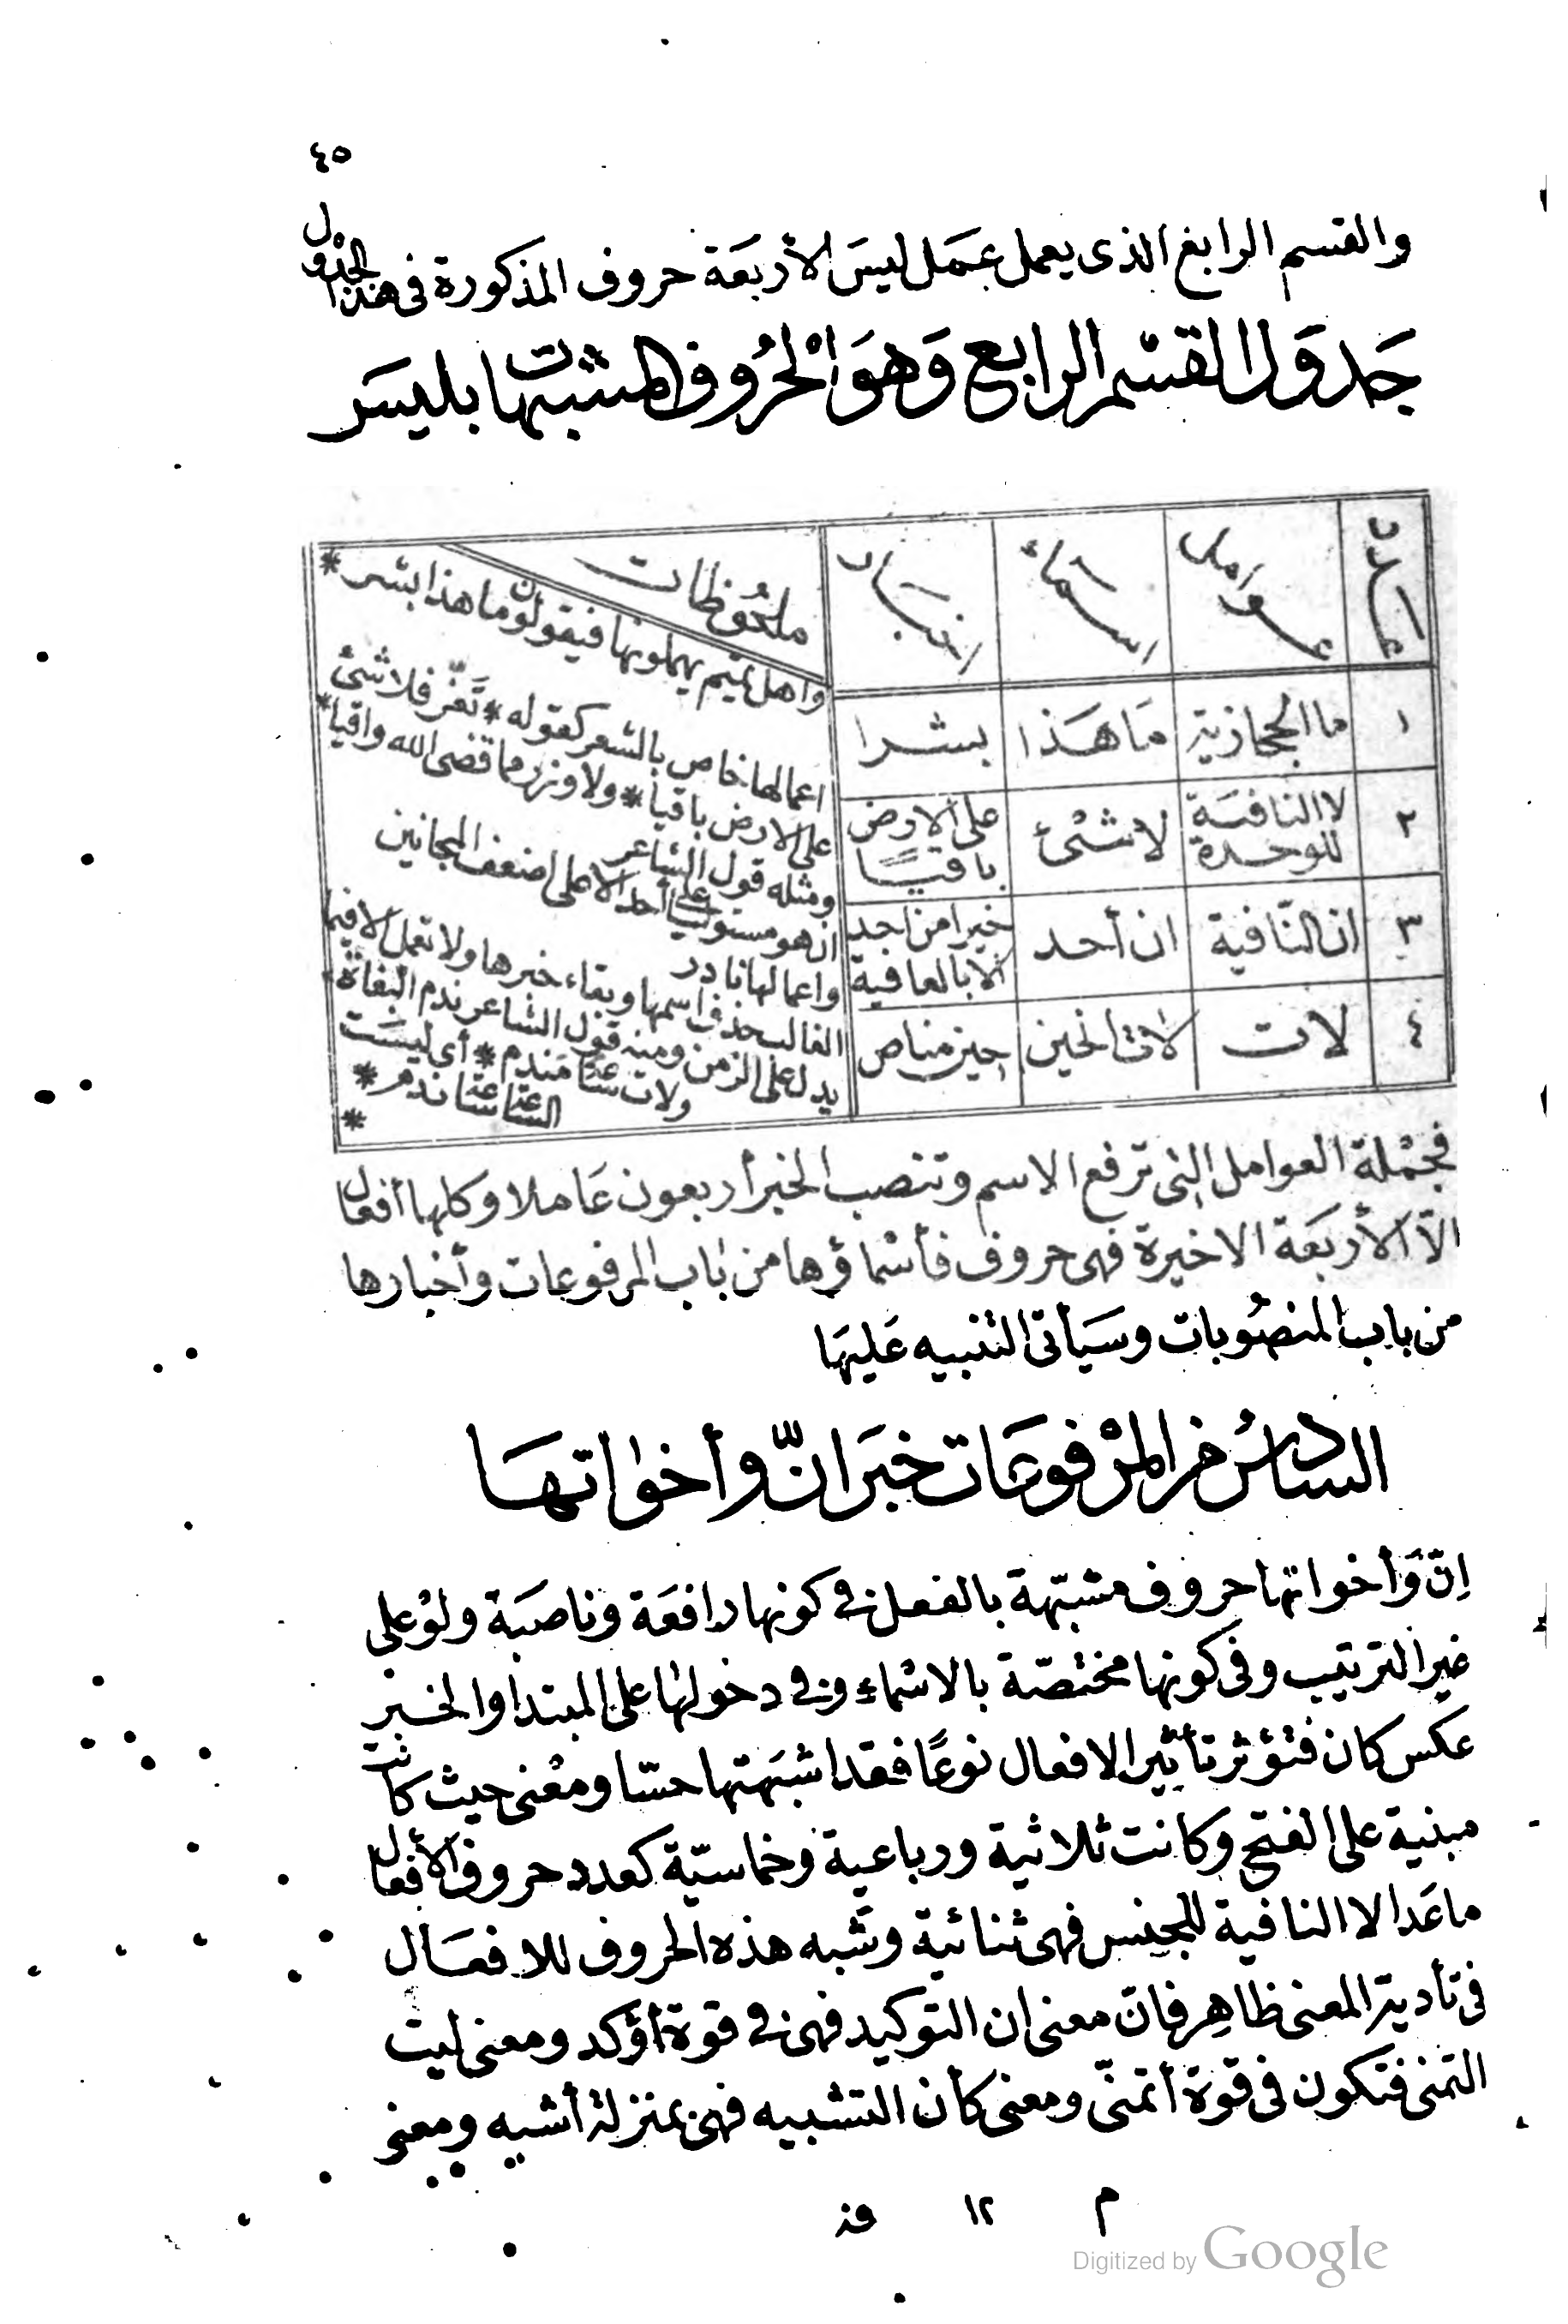 ٤٥
والقسم الرابع الذى يعمل عمَل ليسَ لأربعَة حروف المذكورة فى هذا الجدْول
جَدوَل القسْم الرابع وَهوَ الْحُروف المشبهات بليسَ
عدد
عوامل
اسماء
اخبار
ملحُوظات
١
ما الحجازية
مَا هَذا
بشرا
٢
لا النافيَة
للوحدة
لا شئ
على الارض
باقيًا
٣
ان النّافية
ان أحد
خيرا من احد
الا بالعافية
٤
لات
لات الحين
حين مناص
واهل تميم يهملونها فيقولون ما هذا بشر *
اعمالها خاص بالشعر كقوله * تَعَزّ فلا شئ
على الارض باقيا * ولا وزر مما قضى الله واقيا *
ومثله قول الشاعر
ان هو مستوليا على أحد الا على اضعف المجانين
واعمالها نادر
الغالب حذف اسمها وبقاء خبرها ولا تعمل الا فيما
يدل على الزمن ومنه قول الشاعر ندم البغاة
ولات ساعة مَندم * أى ليسَت
الساعة ساعة ندم *
*
فجمْلة العوامل التى ترفع الاسم وتنصب الخبر أربعون عَاملا وكلها أفعال
الاّ الأربعَة الاخيرة فهى حروف فأسْماؤها من باب المرفوعات وأخبارها
من باب المنصُوبات وسَيأتى التنبيه عَليهَا
السادسُ من المرْفوعَات خبَر انّ وأخواتهَا
اِنّ وَأخواتها حروف مشبّهة بالفعل فى كونها رافعَة وناصبَة ولوْ على
غير الترتيب وفى كونها مختصّة بالاسْماء وفى دخولها على المبتدا والخبر
عكس كان فتؤثر تأثير الافعال نوعًا فقد اشبَهتها حسّا ومعْنى حيث كانت
مبنية على الفتح وكانت ثلاثية ورباعية وخماسيّة كعدد حروف الأفعال
ماعَدا لا النافية للجنس فهى ثنائية وشبه هذه الحروف للافعَال
فى تأدية المعنى ظاهِر فان معنى ان التوكيد فهى فى قوة أؤكد ومعنى ليت
التمنى فتكون فى قوة أتمنّى ومعنى كأن التشبيه فهى بمنزلة أشبه ومعنى
م ١٢ فذ
Digitized by Google